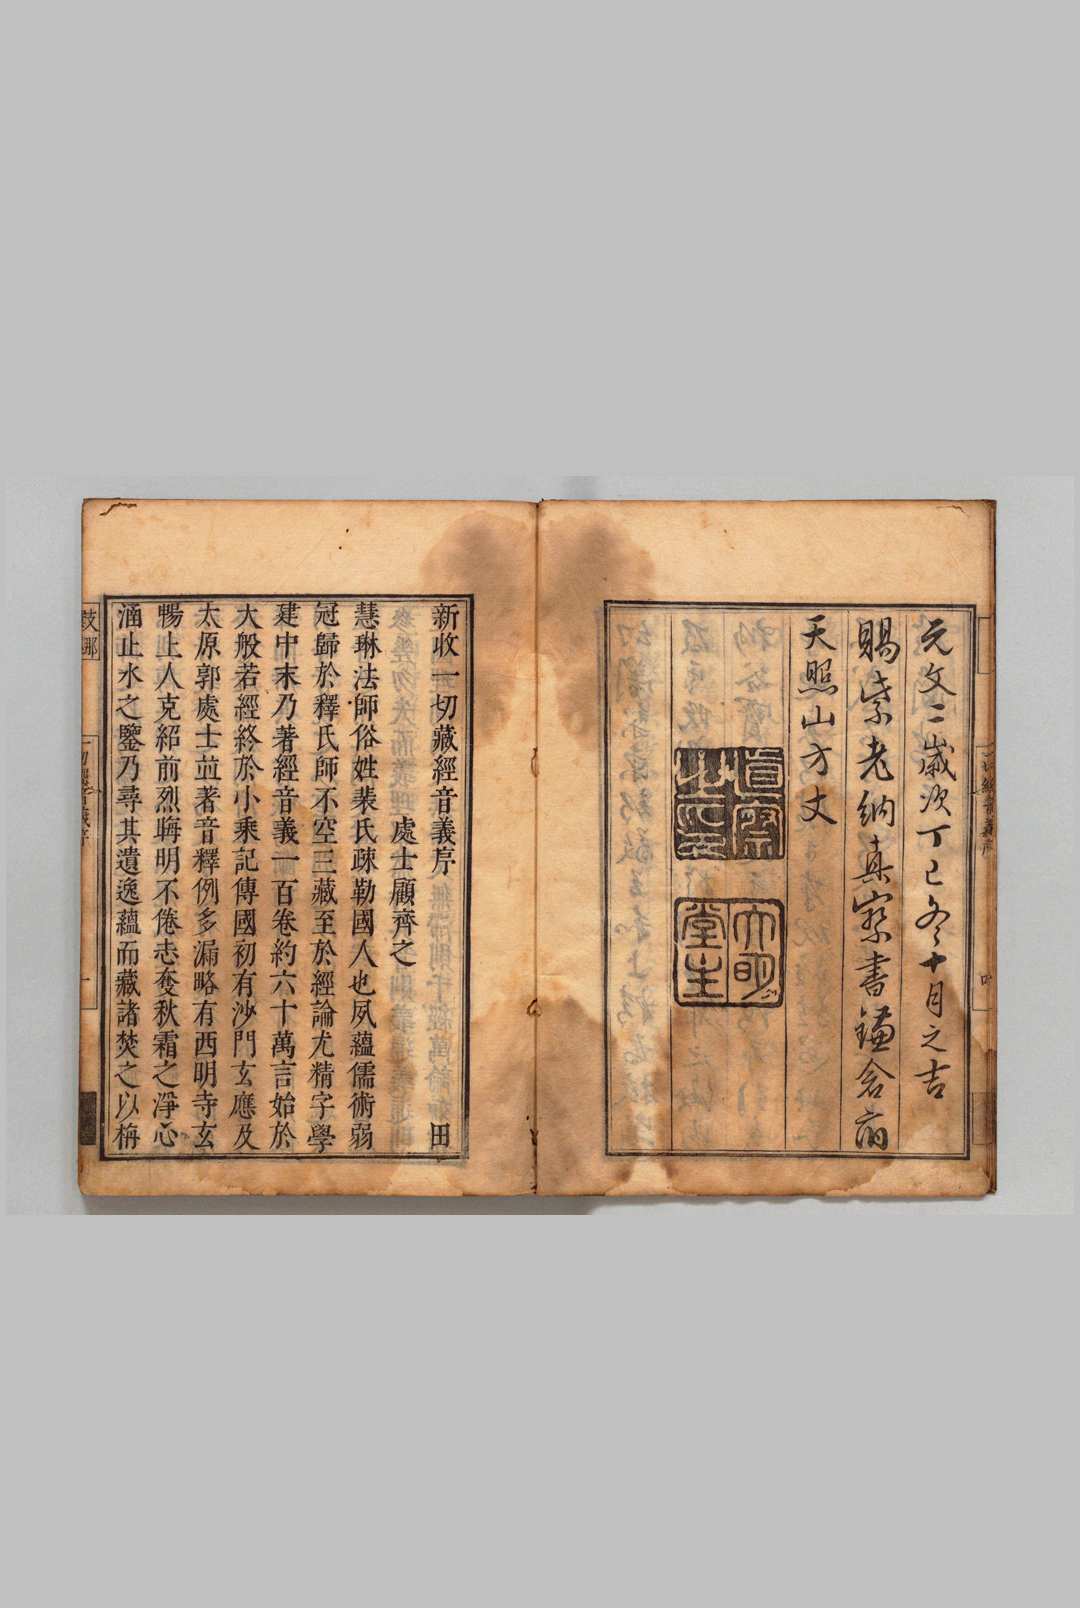 元文二歳次丁巳冬十月之吉
賜紫老衲真察書鎌倉府
天照山方丈
真察
之印
大明
堂主
新收一切藏經音義序
處士顧齊之
慧琳法師俗姓裴氏疎勒國人也夙蘊儒術弱
冠歸於釋氏師不空三藏至於經論尤精字學
建中末乃著經音義一百卷約六十萬言始於
大般若經終於小乘記傳國初有沙門玄應及
太原郭處士並著音釋例多漏略有西明寺玄
暢上人克紹前烈晦明不倦志奪秋霜之淨心
涵止水之鑒乃尋其遺逸蘊而藏諸焚之以栴
田